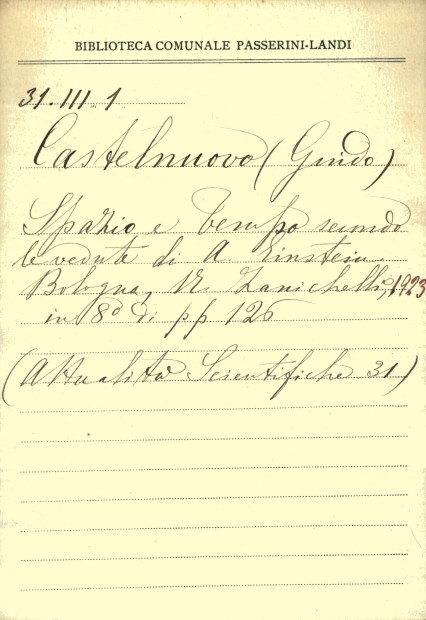 BIBLIOTECA COMUNALE PASSERINI-LANDI
31.III.1
Castelnuovo (Guido)
Spazio e tempo secondo
le vedute di A. Einstein
Bologna, N. Zanichelli, 1923
in 8º di pp 126
(Attualità Scientifiche 31)